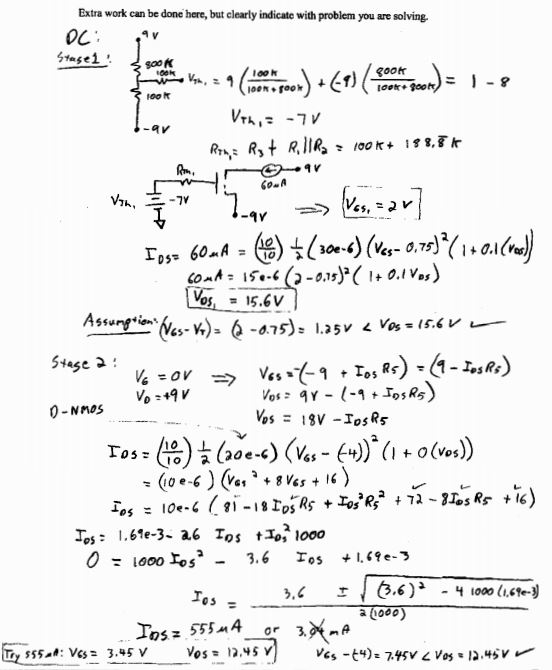 Extra work can be done here, but clearly indicate with problem you are solving.
DC:
Stage 1:
9V
800K
100K
100K
-9V
V_Th1 = 9 (100K / (100K + 800K)) + (-9) (800K / (100K + 800K)) = 1 - 8
V_Th1 = -7V
R_Th1 = R3 + R1||R2 = 100K + 188.8̄ K
R_Th1
V_Th1
-7V
60uA
9V
-9V
⇒ V_GS1 = 2V
I_DS = 60uA = (10/10) 1/2 (30e-6) (V_GS - 0.75)² (1 + 0.1(V_DS))
60uA = 15e-6 (2 - 0.75)² (1 + 0.1 V_DS)
V_DS1 = 15.6V
Assumption: (V_GS - V_T) = (2 - 0.75) = 1.25V < V_DS = 15.6V ✓
Stage 2:
V_G = 0V ⇒ V_GS = -(-9 + I_DS R5) = (9 - I_DS R5)
V_D = +9V V_DS = 9V - (-9 + I_DS R5)
D-NMOS
V_DS = 18V - I_DS R5
I_DS = (10/10) 1/2 (20e-6) (V_GS - (-4))² (1 + 0(V_DS))
= (10e-6) (V_GS² + 8V_GS + 16)
I_DS = 10e-6 (81 - 18 I_DS R5 + I_DS² R5² + 72 - 8 I_DS R5 + 16)
I_DS = 1.69e-3 - 2.6 I_DS + I_DS² 1000
0 = 1000 I_DS² - 3.6 I_DS + 1.69e-3
I_DS = (3.6 ± √((3.6)² - 4 1000 (1.69e-3))) / 2(1000)
I_DS = 555uA or mA
Try 555uA: V_GS = 3.45V V_DS = 12.45V
V_GS - (-4) = 7.45V < V_DS = 12.45V ✓